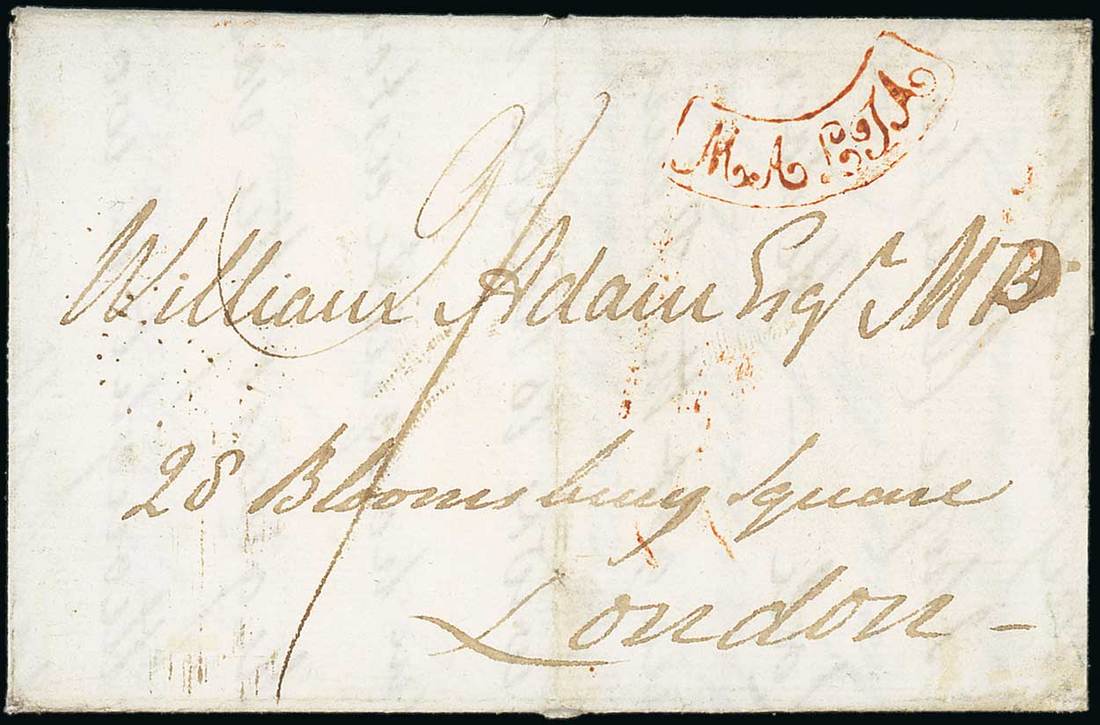 MALTA
William Adam Esqr MP
28 Bloomsbury Square
London –